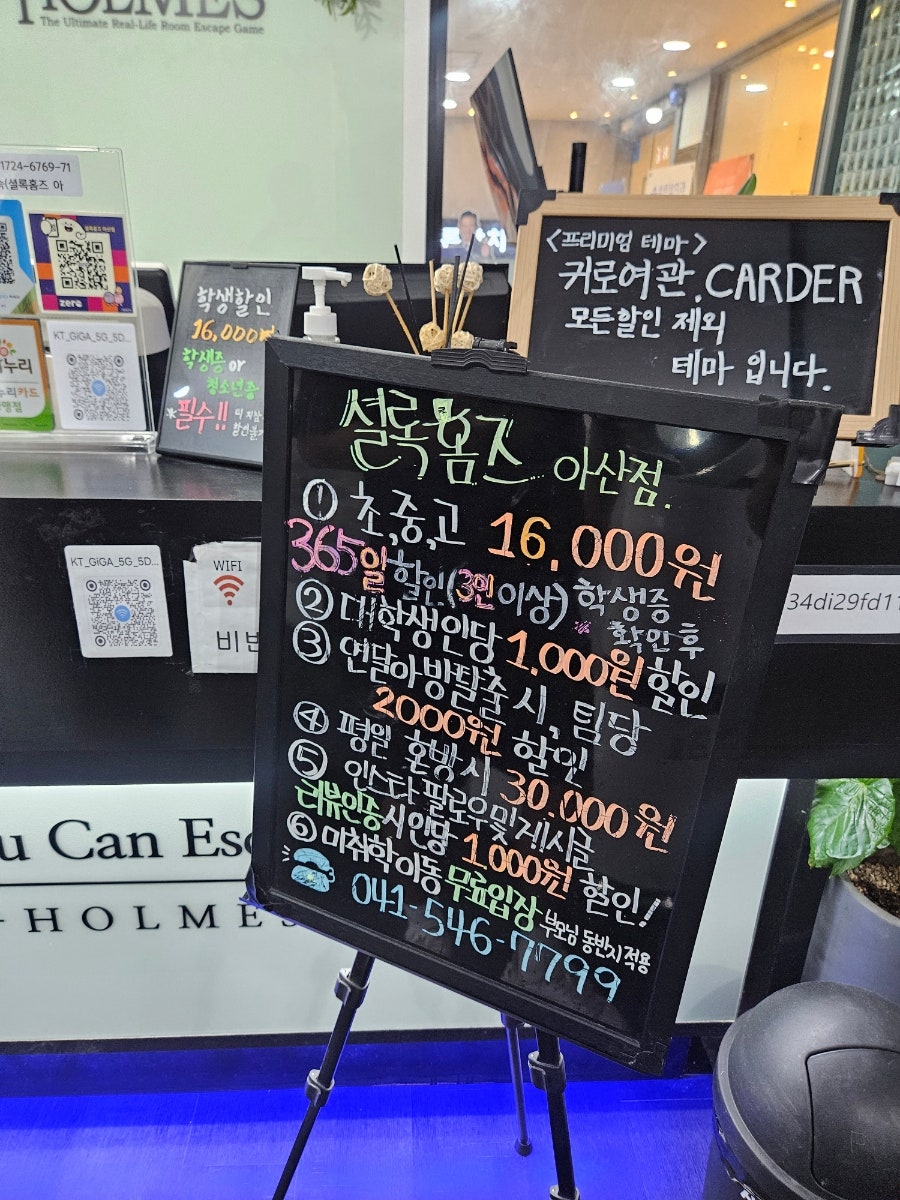 HOLMES
The Ultimate Real-Life Room Escape Game
1724-6769-71
(셜록홈즈 아
zero
KT_GiGA_5G_5D...
누리
누리카드
맹점
학생할인
16,000원
학생증 or
청소년증
*필수!!
<프리미엄 테마>
커로여관.CARDER
모든할인 제외
테마 입니다.
셜록홈즈 아산점.
① 초,중,고 16.000원
365일할인(3인이상) 학생증
확인 후
② 대학생인당 1,000원할인
③ 연달아방탈출시, 팀당
2000원 할인
④ 평일 혼방시 30.000원
⑤ 인스타팔로우및게시글
리뷰인증시인당 1000원 할인!
⑥ 미취학아동무료입장 부모님 동반시적용
041-546-7799
KT_GiGA_5G_5D...
WIFI
비번
34di29fd11
u Can Esc
HOLMES